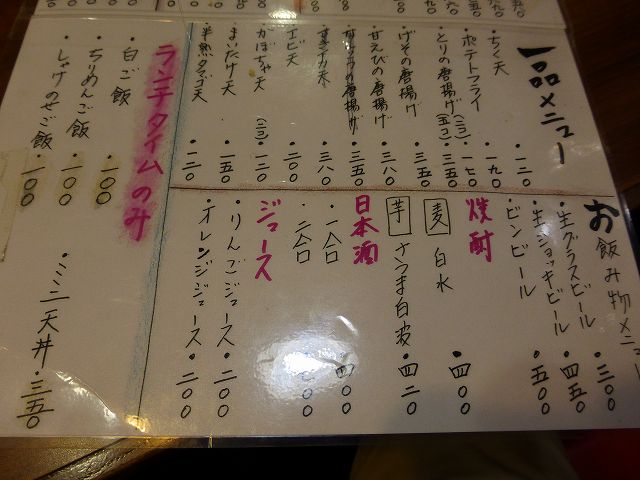 一品メニュー
・ちく天 ・一二〇
・ポテトフライ ・一九〇
・とりの唐揚げ(二コ) ・一七〇
(五コ) ・三五〇
・げその唐揚げ ・三五〇
・甘えびの唐揚げ ・三八〇
唐揚げ ・三五〇
天 ・三八〇
・エビ天 ・二〇〇
・かぼちゃ天(二コ) ・一二〇
・まいたけ天 ・一五〇
・半熟タマゴ天 ・一二〇
ランチタイムのみ
・白ご飯 ・一〇〇
・ちりめんご飯 ・一〇〇
・しゃけのせご飯 ・一〇〇
・ミニ天丼 ・三五〇
お飲み物メニュー
・生グラスビール ・三〇〇
・生ジョッキビール ・四五〇
・ビンビール ・五〇〇
焼酎
麦 白水 ・四〇〇
芋 さつま白波 ・四二〇
日本酒
・一合 ・四〇〇
・二合 〇〇
ジュース
・りんごジュース ・二〇〇
・オレンジジュース ・二〇〇